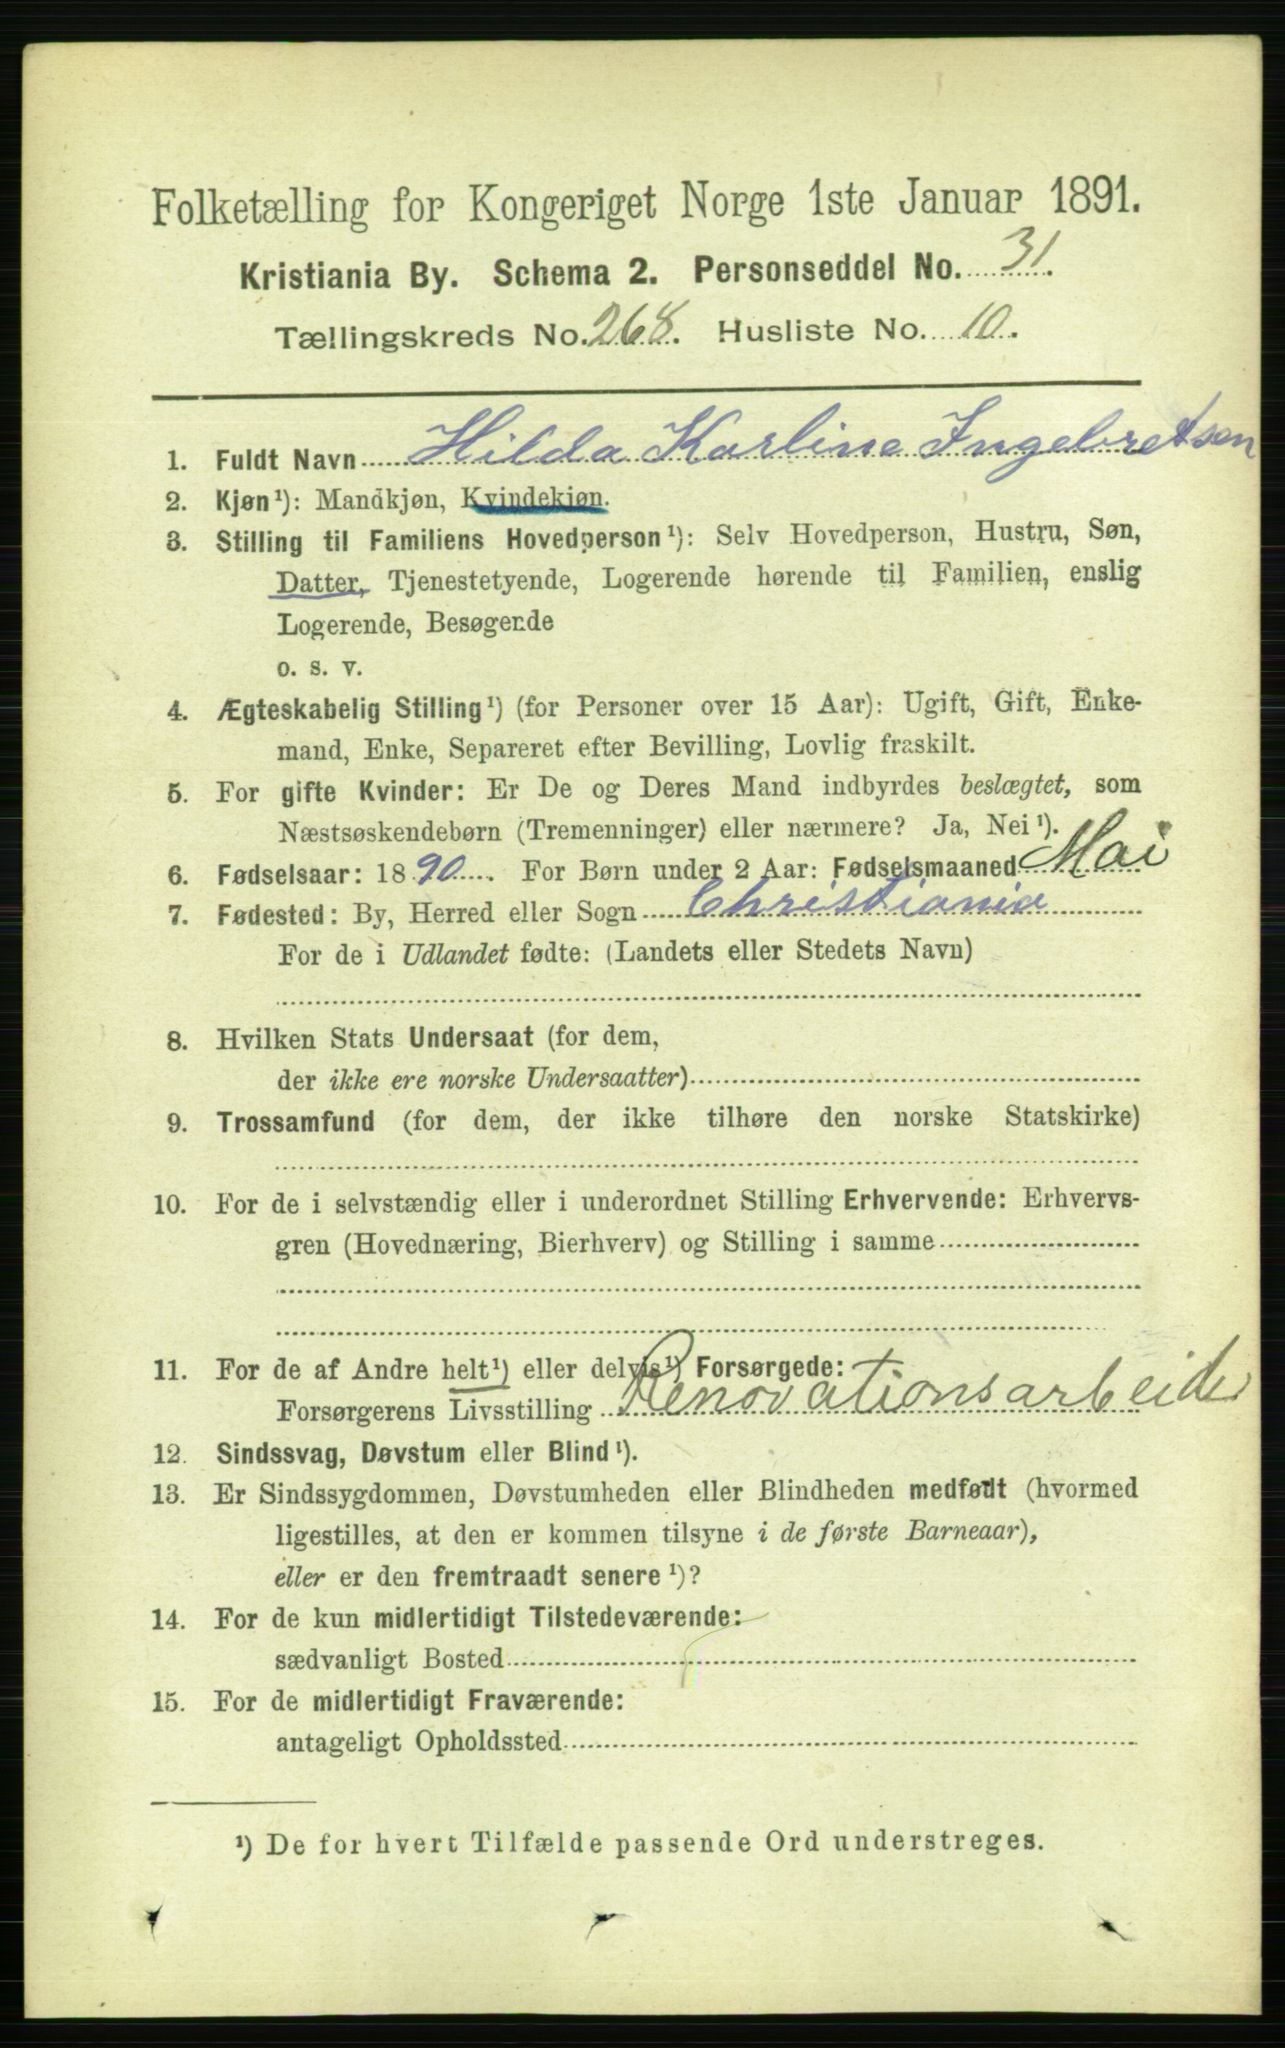 Folketælling for Kongeriget Norge 1ste Januar 1891.
Kristiania By. Schema 2. Personseddel No. 31.
Tællingskreds No. 268. Husliste No. 10.
1. Fuldt Navn Hilda Karline Ingebretsen
2. Kjøn¹): Mandkjøn, Kvindekjøn.
3. Stilling til Familiens Hovedperson¹): Selv Hovedperson, Hustru, Søn,
Datter, Tjenestetyende, Logerende hørende til Familien, enslig
Logerende, Besøgende
o. s. v.
4. Ægteskabelig Stilling¹) (for Personer over 15 Aar): Ugift, Gift, Enke-
mand, Enke, Separeret efter Bevilling, Lovlig fraskilt.
5. For gifte Kvinder: Er De og Deres Mand indbyrdes beslægtet, som
Næstsøskendebørn (Tremenninger) eller nærmere? Ja, Nei¹).
6. Fødselsaar: 1890. For Børn under 2 Aar: Fødselsmaaned Mai
7. Fødested: By, Herred eller Sogn Christiania
For de i Udlandet fødte: (Landets eller Stedets Navn)
8. Hvilken Stats Undersaat (for dem,
der ikke ere norske Undersaatter)
9. Trossamfund (for dem, der ikke tilhøre den norske Statskirke)
10. For de i selvstændig eller i underordnet Stilling Erhvervende: Erhvervs-
gren (Hovednæring, Bierhverv) og Stilling i samme
11. For de af Andre helt¹) eller delvis¹) Forsørgede:
Forsørgerens Livsstilling Renovationsarbeider
12. Sindssvag, Døvstum eller Blind¹).
13. Er Sindssygdommen, Døvstumheden eller Blindheden medfødt (hvormed
ligestilles, at den er kommen tilsyne i de første Barneaar),
eller er den fremtraadt senere¹)?
14. For de kun midlertidigt Tilstedeværende:
sædvanligt Bosted
15. For de midlertidigt Fraværende:
antageligt Opholdssted
¹) De for hvert Tilfælde passende Ord understreges.